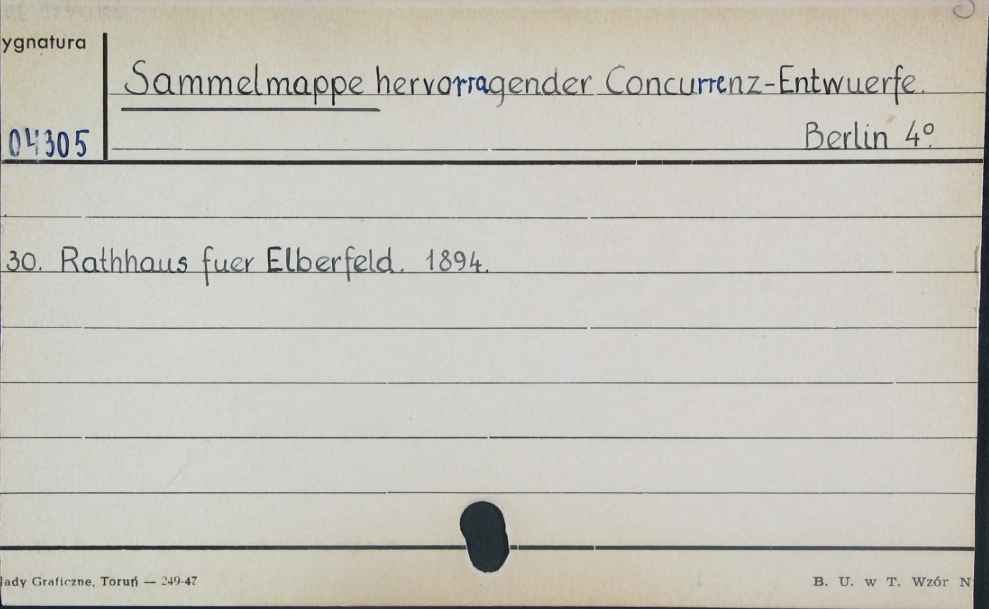 ygnatura
Sammelmappe hervorragender Concurrenz-Entwuerfe.
04305
Berlin 4º.
30. Rathhaus fuer Elberfeld. 1894.
łady Graficzne, Toruń — 249-47
B. U. w T. Wzór N